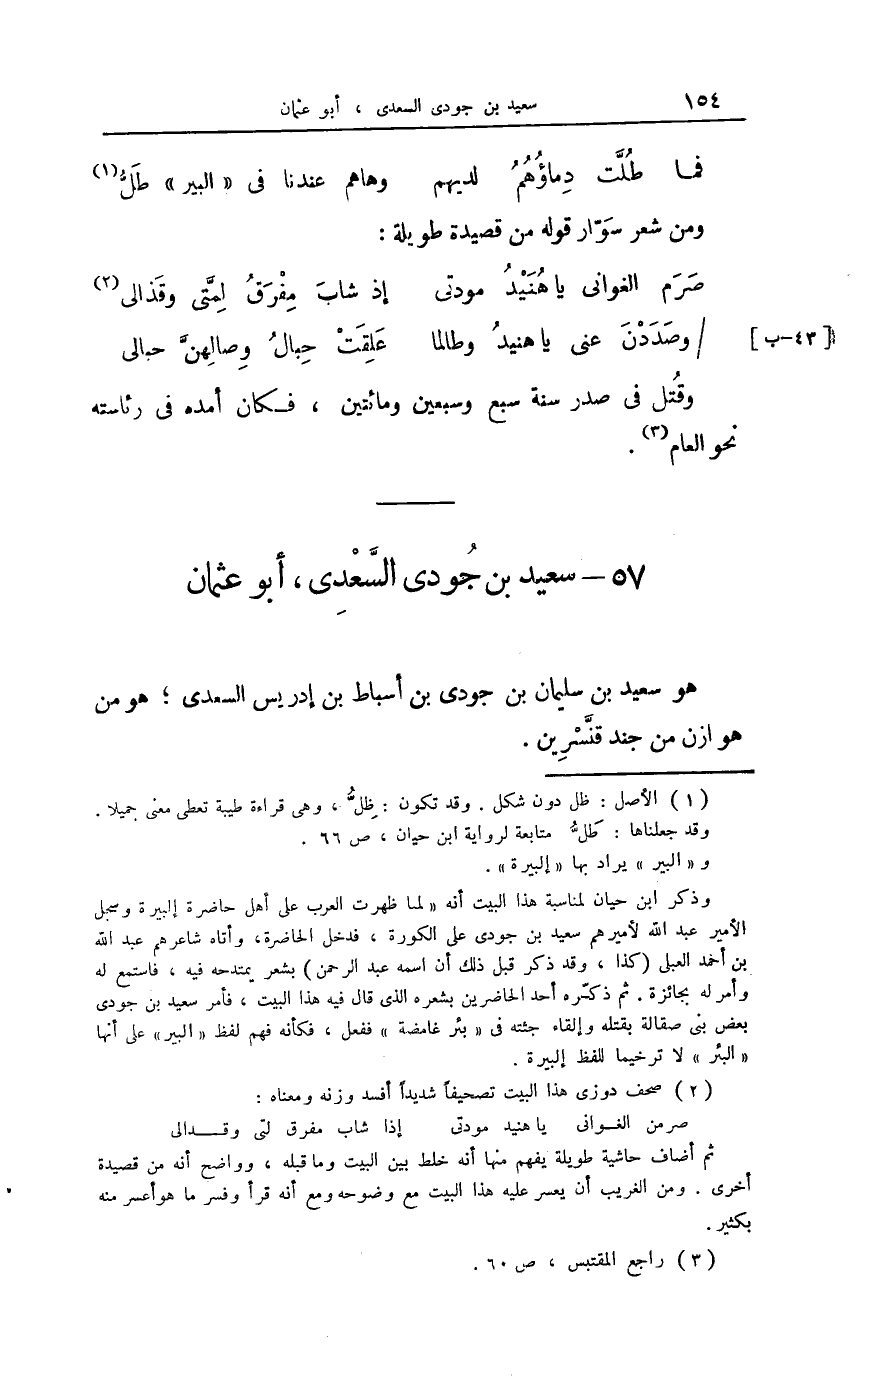 ١٥٤ سعيد بن جودى السعدى ، أبو عثمان
فما طُلَّت دِماؤُهُمُ لديهم وهاهم عندنا فى « البير » طَلُّ(١)
ومن شعر سَوّار قوله من قصيدة طويلة :
صَرَم الغوانى يا هُنَيْدُ مودتى إذ شابَ مِفْرَقُ لِمَّتى وقَذالى(٢)
[٤٣-ب] / وصَدَدْنَ عنى يا هنيدُ وطالما عَلِقَتْ حِبالُ وِصالِهنَّ حبالى
وقُتل فى صدر سنة سبع وسبعين ومائتين ، فــكان أمده فى رئاسته
نحو العام(٣) .
٥٧ – سعيد بن جُودى السَّعْدِى ، أبو عثمان
هو سعيد بن سليمان بن جودى بن أسباط بن إدريس السعدى ؛ هو من
هوازن من جند قنَّسْرِين .
( ١ ) الأصل : ظل دون شكل . وقد تكون : ظلُّ ، وهى قراءة طيبة تعطى معنى جميلا .
وقد جعلناها : طَلُّ متابعة لرواية ابن حيان ، ص ٦٦ .
و « البير » يراد بها « إلبيرة » .
وذكر ابن حيان لمناسبة هذا البيت أنه « لما ظهرت العرب على أهل حاضرة إلبيرة وسجل
الأمير عبد الله لأميرهم سعيد بن جودى على الكورة ، فدخل الحاضرة، وأتاه شاعرهم عبد الله
بن أحمد العبلى (كذا ، وقد ذكر قبل ذلك أن اسمه عبد الرحمن ) بشعر يمتدحه فيه ، فاستمع له
وأمر له بجائزة . ثم ذكّره أحد الحاضرين بشعره الذى قال فيه هذا البيت ، فأمر سعيد بن جودى
بعض بنى صقالة بقتله وإلقاء جثته فى « بئر غامضة » ففعل ، فكأنه فهم لفظ « البير» على أنها
« البئر » لا ترخيما للفظ إلبيرة .
( ٢ ) صحف دوزى هذا البيت تصحيفاً شديداً أفسد وزنه ومعناه :
صرمن الغــوانى يا هنيد مودتى إذا شاب مفرق لتى وقــــدالى
ثم أضاف حاشية طويلة يفهم منها أنه خلط بين البيت وما قبله ، وواضح أنه من قصيدة
أخرى . ومن الغريب أن يعسر عليه هذا البيت مع وضوحه ومع أنه قرأ وفسر ما هو أعسر منه
بكثير .
( ٣ ) راجع المقتبس ، ص ٦٠ .